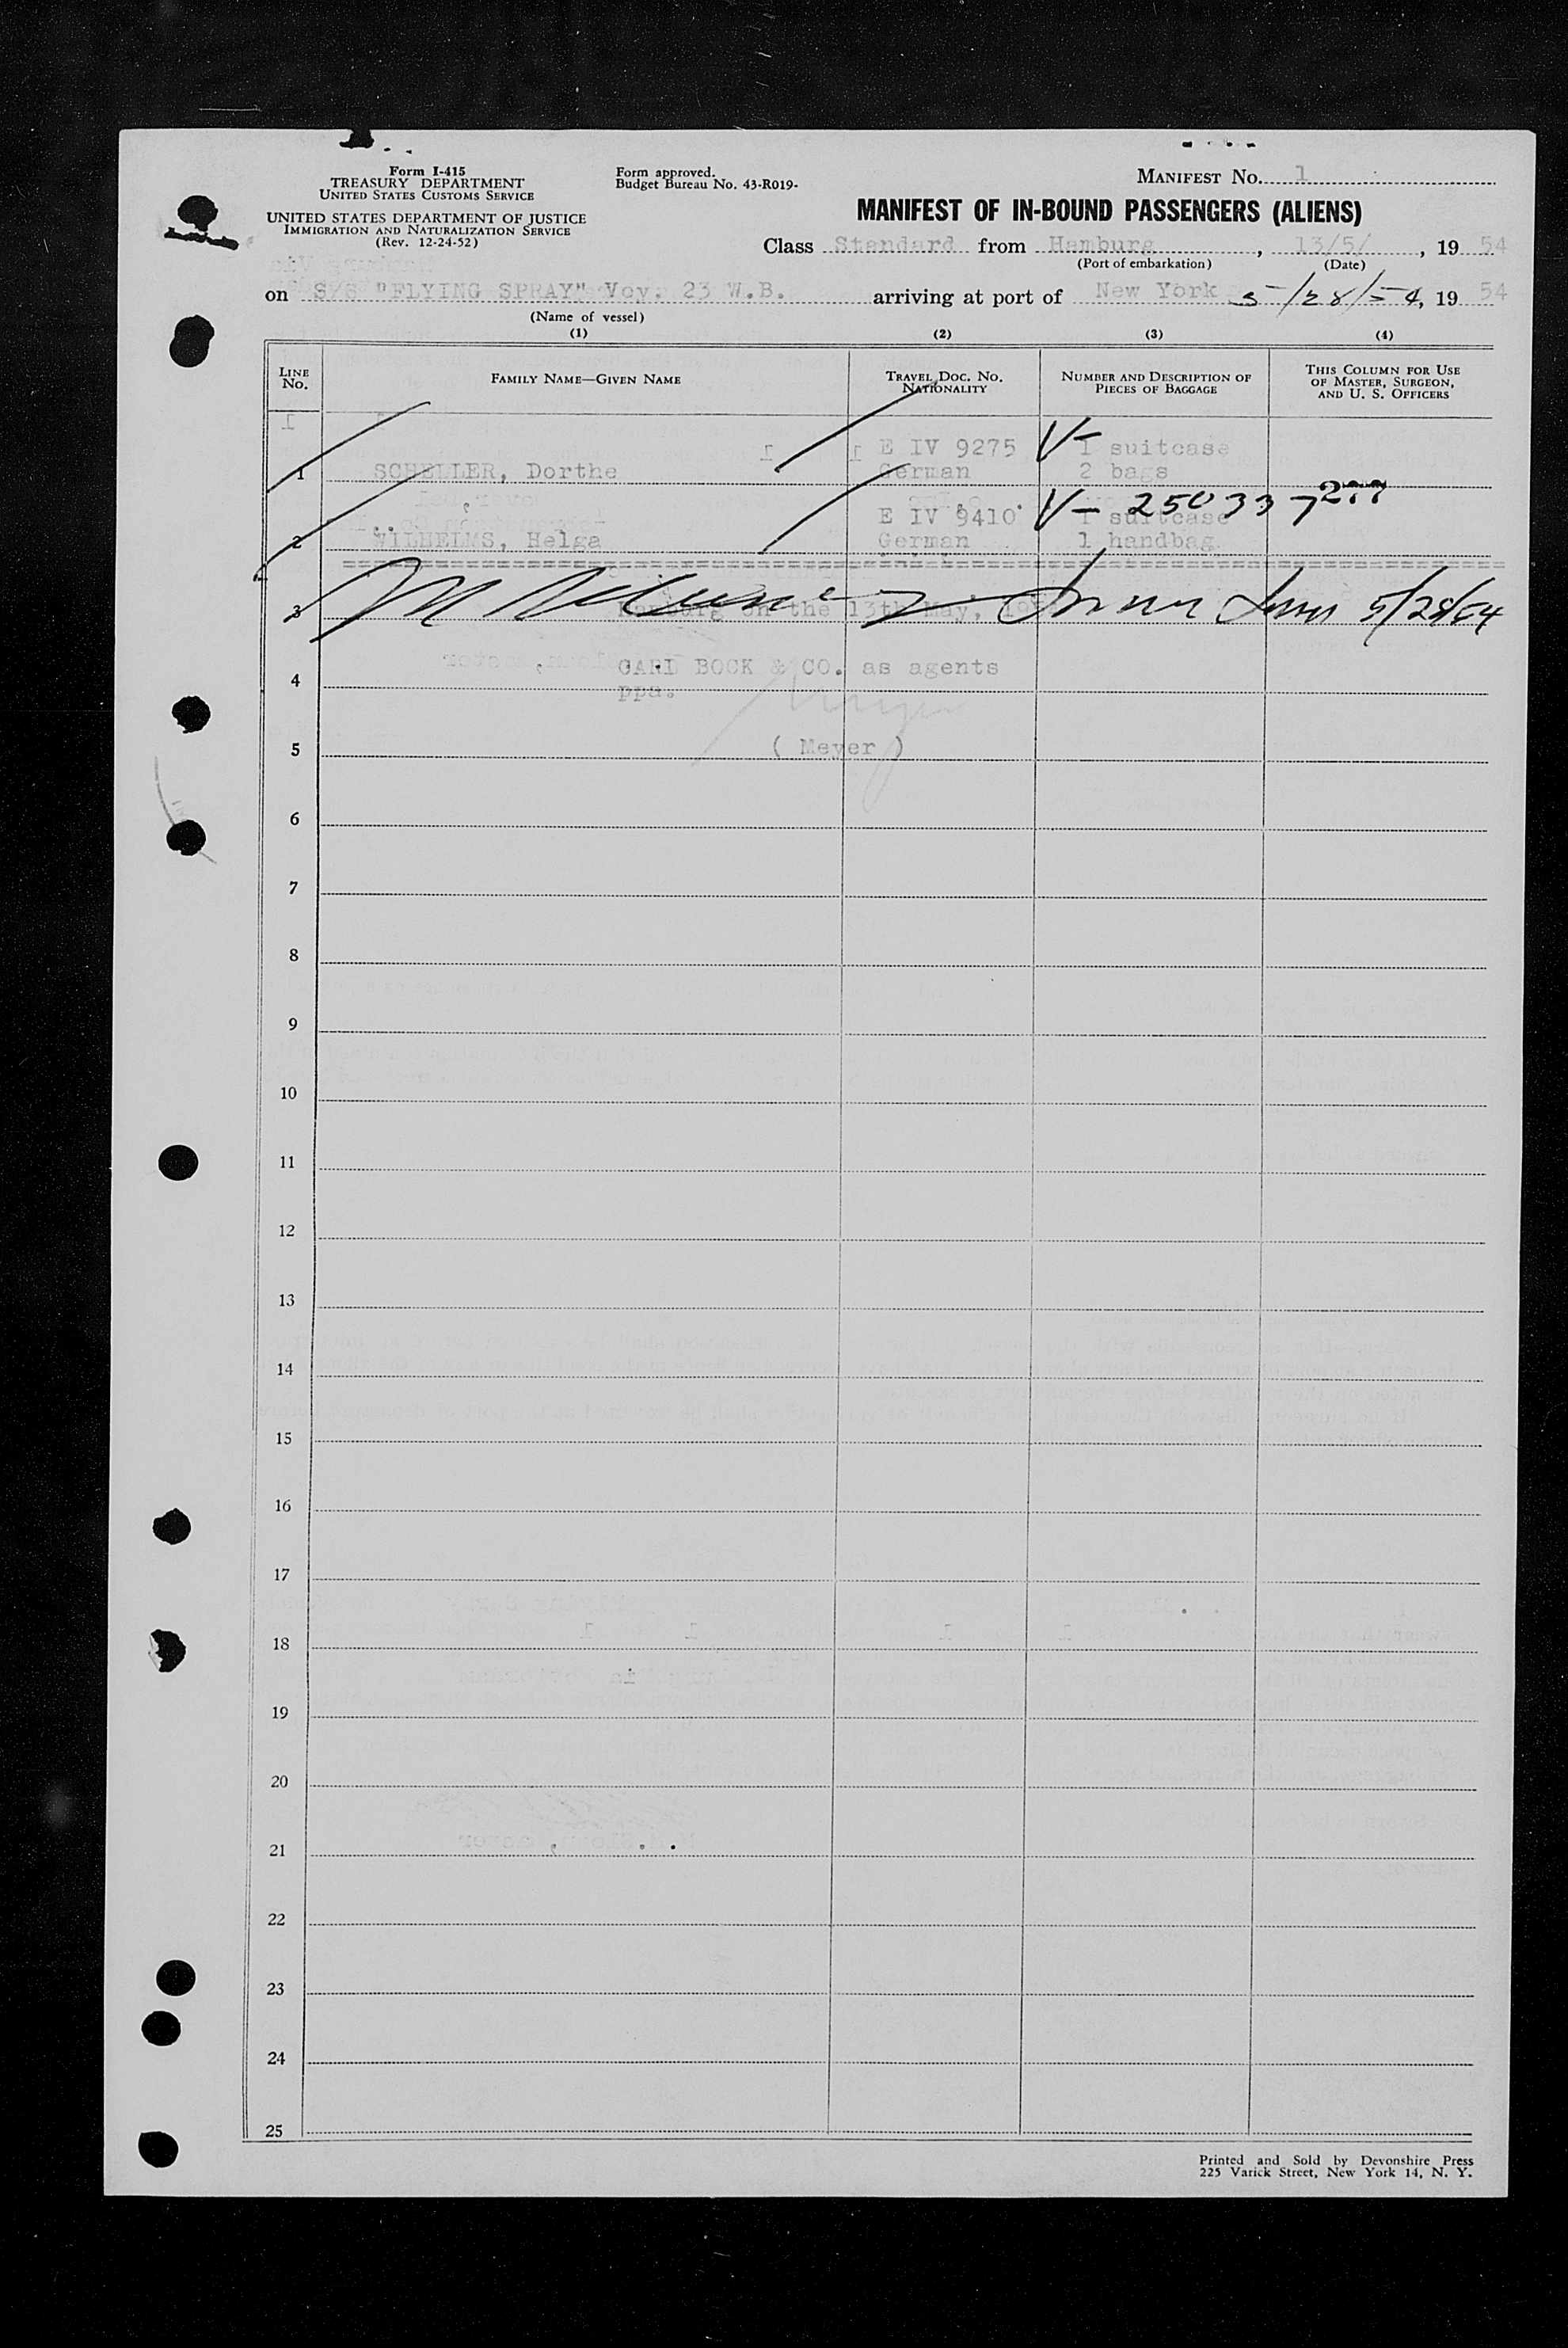 Form I-415
TREASURY DEPARTMENT
UNITED STATES CUSTOMS SERVICE
UNITED STATES DEPARTMENT OF JUSTICE
IMMIGRATION AND NATURALIZATION SERVICE
(Rev. 12-24-52)
Form approved.
Budget Bureau No. 43-R019-
MANIFEST NO. 1
MANIFEST OF IN-BOUND PASSENGERS (ALIENS)
Class Standard from Hamburg, 13/5/, 19 54
(Port of embarkation) (Date)
on S/S "FLYING SPRAY" Voy. 23 W.B. arriving at port of New York 5/28/54, 19 54
(Name of vessel)
(1) (2) (3) (4)
LINE No. FAMILY NAME—GIVEN NAME TRAVEL DOC. NO. NATIONALITY NUMBER AND DESCRIPTION OF PIECES OF BAGGAGE THIS COLUMN FOR USE OF MASTER, SURGEON, AND U. S. OFFICERS
E IV 9275 V- 1 suitcase
1 SCHELLER, Dorthe German 2 bags
V- 250337
E IV 9410 1 suitcase
2 WILHELMS, Helga German 1 handbag
3 Hamburg on the 13th May, 5/28/54
4 CARL BOCK & CO. as agents
ppa.
5 ( Meyer )
6
7
8
9
10
11
12
13
14
15
16
17
18
19
20
21
22
23
24
25
Printed and Sold by Devonshire Press
225 Varick Street, New York 14, N. Y.